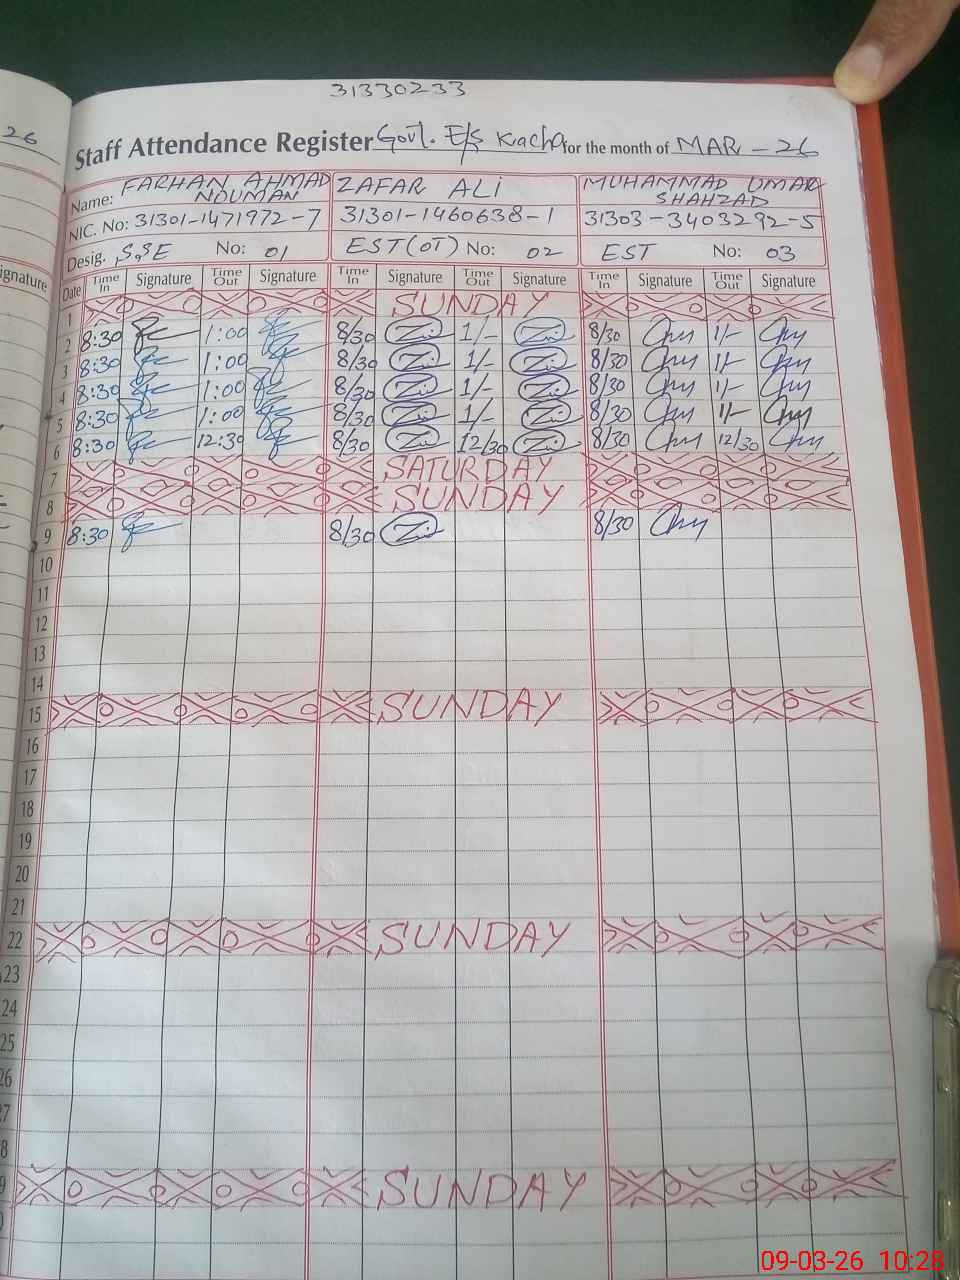 31330233
26
Staff Attendance Register Govt. E/S Kacha for the month of MAR - 26
Name: FARHAN AHMAD NOUMAN ZAFAR ALI MUHAMMAD UMAR SHAHZAD
NIC. No: 31301-1471972-7 31301-1460638-1 31303-3403292-5
Desig. S.SE No: 01 EST (OT) No: 02 EST No: 03
ignature
Date Time In Signature Time Out Signature Time In Signature Time Out Signature Time In Signature Time Out Signature
1 SUNDAY
2 8:30 1:00 8/30 1/- 8/30 1/-
3 8:30 1:00 8/30 1/- 8/30 1/-
4 8:30 1:00 8/30 1/- 8/30 1/-
5 8:30 1:00 8/30 1/- 8/30 1/-
6 8:30 12:30 8/30 12/30 8/30 12/30
7 SATURDAY
8 SUNDAY
9 8:30 8/30 8/30
10
11
12
13
14
15 SUNDAY
16
17
18
19
20
21
22 SUNDAY
23
24
25
26
27
28
SUNDAY
09-03-26 10:28